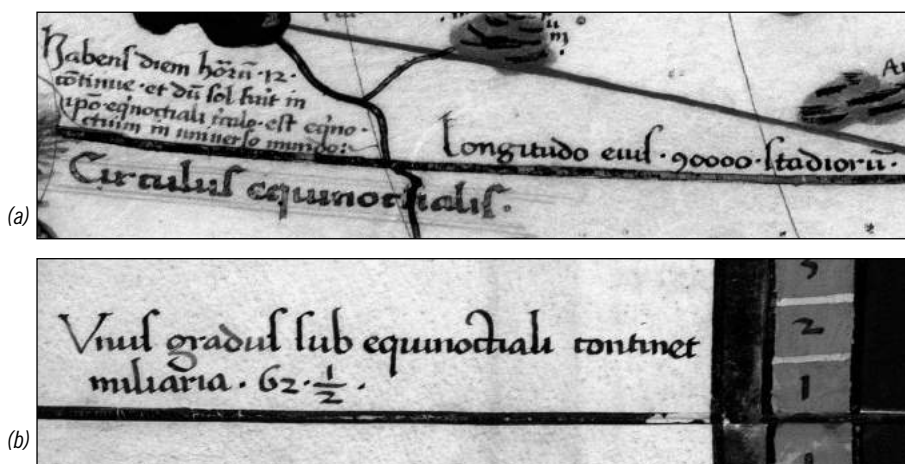 (a)
Habens diem hōrū·12·
cōtinue·et dū sol fuit in
ip̄o·eq̄noctiali circulo·est eq̄no-
ctium in universo mundo:
Longitudo eius·90000·stadiorū·
Circulus equinoctialis·
(b)
Vnus gradus sub equinoctiali continet
miliaria·62·½·
3
2
1
1